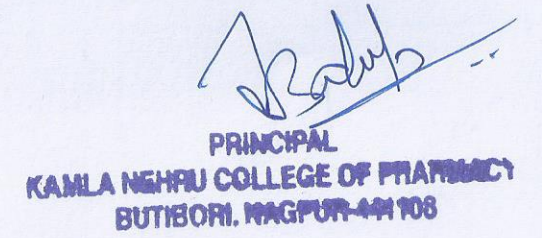 PRINCIPAL
KAMLA NEHRU COLLEGE OF PHARMACY
BUTIBORI, NAGPUR-441108